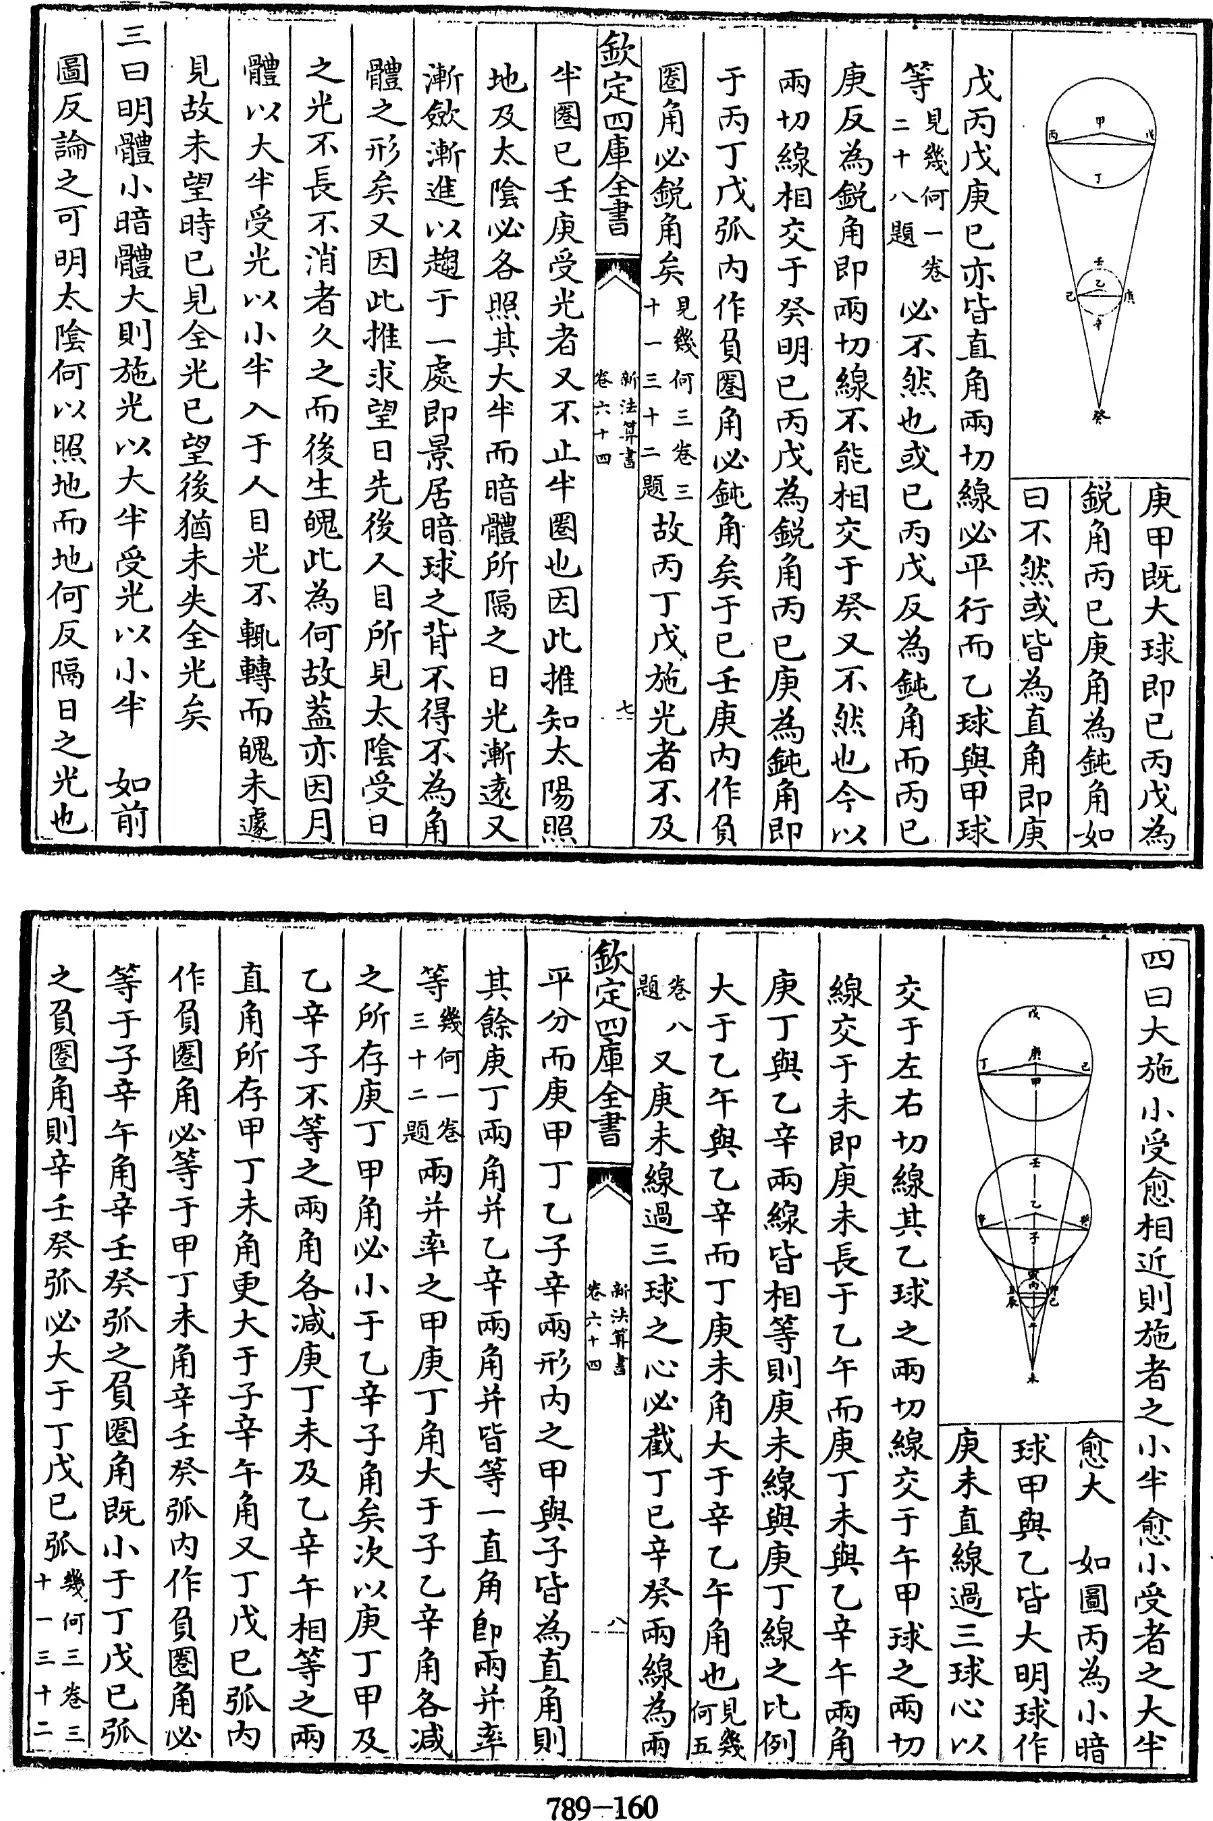 庚甲既大球即已丙戊為
鋭角丙已庚角為鈍角如
曰不然或皆為直角即庚
戊丙戊庚已亦皆直角兩切線必平行而乙球與甲球
等見幾何一卷二十八題必不然也或已丙戊反為鈍角而丙已
庚反為鋭角即兩切線不能相交于癸又不然也今以
兩切線相交于癸明已丙戊為鋭角丙已庚為鈍角即
于丙丁戊弧内作負圏角必鈍角矣于已壬庚内作負
圏角必鋭角矣見幾何三卷三十一三十二題故丙丁戊施光者不及
欽定四庫全書
新法算書
卷六十四
七
半圏已壬庚受光者又不止半圏也因此推知太陽照
地及太陰必各照其大半而暗體所隔之日光漸逺又
漸斂漸進以趨于一處即景居暗球之背不得不為角
體之形矣又因此推求望日先後人目所見太陰受日
之光不長不消者久之而後生魄此為何故葢亦因月
體以大半受光以小半入于人目光不輒轉而魄未遽
見故未望時已見全光已望後猶未失全光矣
三曰明體小暗體大則施光以大半受光以小半 如前
圖反論之可明太陰何以照地而地何反隔日之光也
甲
丙
戊
丁
壬
乙
已
庚
辛
癸
四曰大施小受愈相近則施者之小半愈小受者之大半
愈大 如圖丙為小暗
球甲與乙皆大明球作
庚未直線過三球心以
交于左右切線其乙球之兩切線交于午甲球之兩切
線交于未即庚未長于乙午而庚丁未與乙辛午兩角
庚丁與乙辛兩線皆相等則庚未線與庚丁線之比例
大于乙午與乙辛而丁庚未角大于辛乙午角也見幾何五
卷八題又庚未線過三球之心必截丁已辛癸兩線為兩
欽定四庫全書
新法算書
卷六十四
八
平分而庚甲丁乙子辛兩形内之甲與子皆為直角則
其餘庚丁兩角并乙辛兩角并皆等一直角卽兩并率
等幾何一卷三十二題兩并率之甲庚丁角大于子乙辛角各減
之所存庚丁甲角必小于乙辛子角矣次以庚丁甲及
乙辛子不等之兩角各減庚丁未及乙辛午相等之兩
直角所存甲丁未角更大于子辛午角又丁戊已弧内
作負圏角必等于甲丁未角辛壬癸弧内作負圏角必
等于子辛午角辛壬癸弧之負圏角既小于丁戊已弧
之負圏角則辛壬癸弧必大于丁戊已弧幾何三卷三十一三十二
戊
庚
丁
已
甲
壬
乙
辛
癸
子
寅
丙
丑
卯
辰
已
午
未
789-160